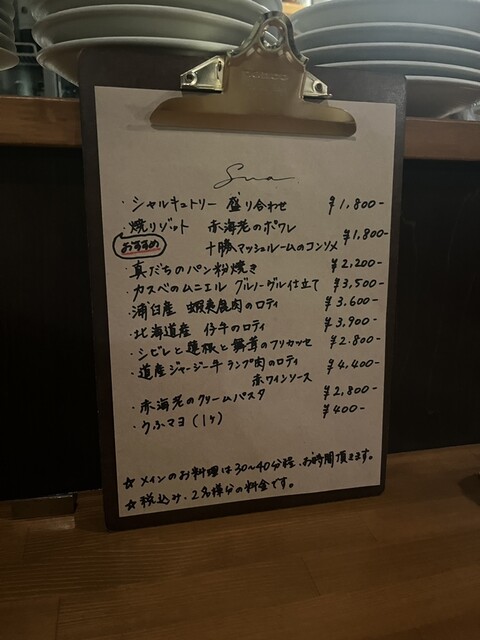 Sua
・シャルキュトリー 盛り合わせ ¥1,800-
・焼リゾット 赤海老のポワレ ¥1,800-
おすすめ 十勝マッシュルームのコンソメ
・真だちのパン粉焼き ¥2,200-
・カスベのムニエル グルノーブル仕立て ¥3,500-
・浦臼産 蝦夷鹿肉のロティ ¥3,600-
・北海道産 仔牛のロティ ¥3,900-
・シビレと蓮根と舞茸のフリカッセ ¥2,800-
・道産ジャージー牛 ランプ肉のロティ ¥4,400-
赤ワインソース
・赤海老のクリームパスタ ¥2,800-
・うふマヨ(1ヶ) ¥400-
☆メインのお料理は30~40分程、お時間頂きます。
☆税込み、2名様分の料金です。